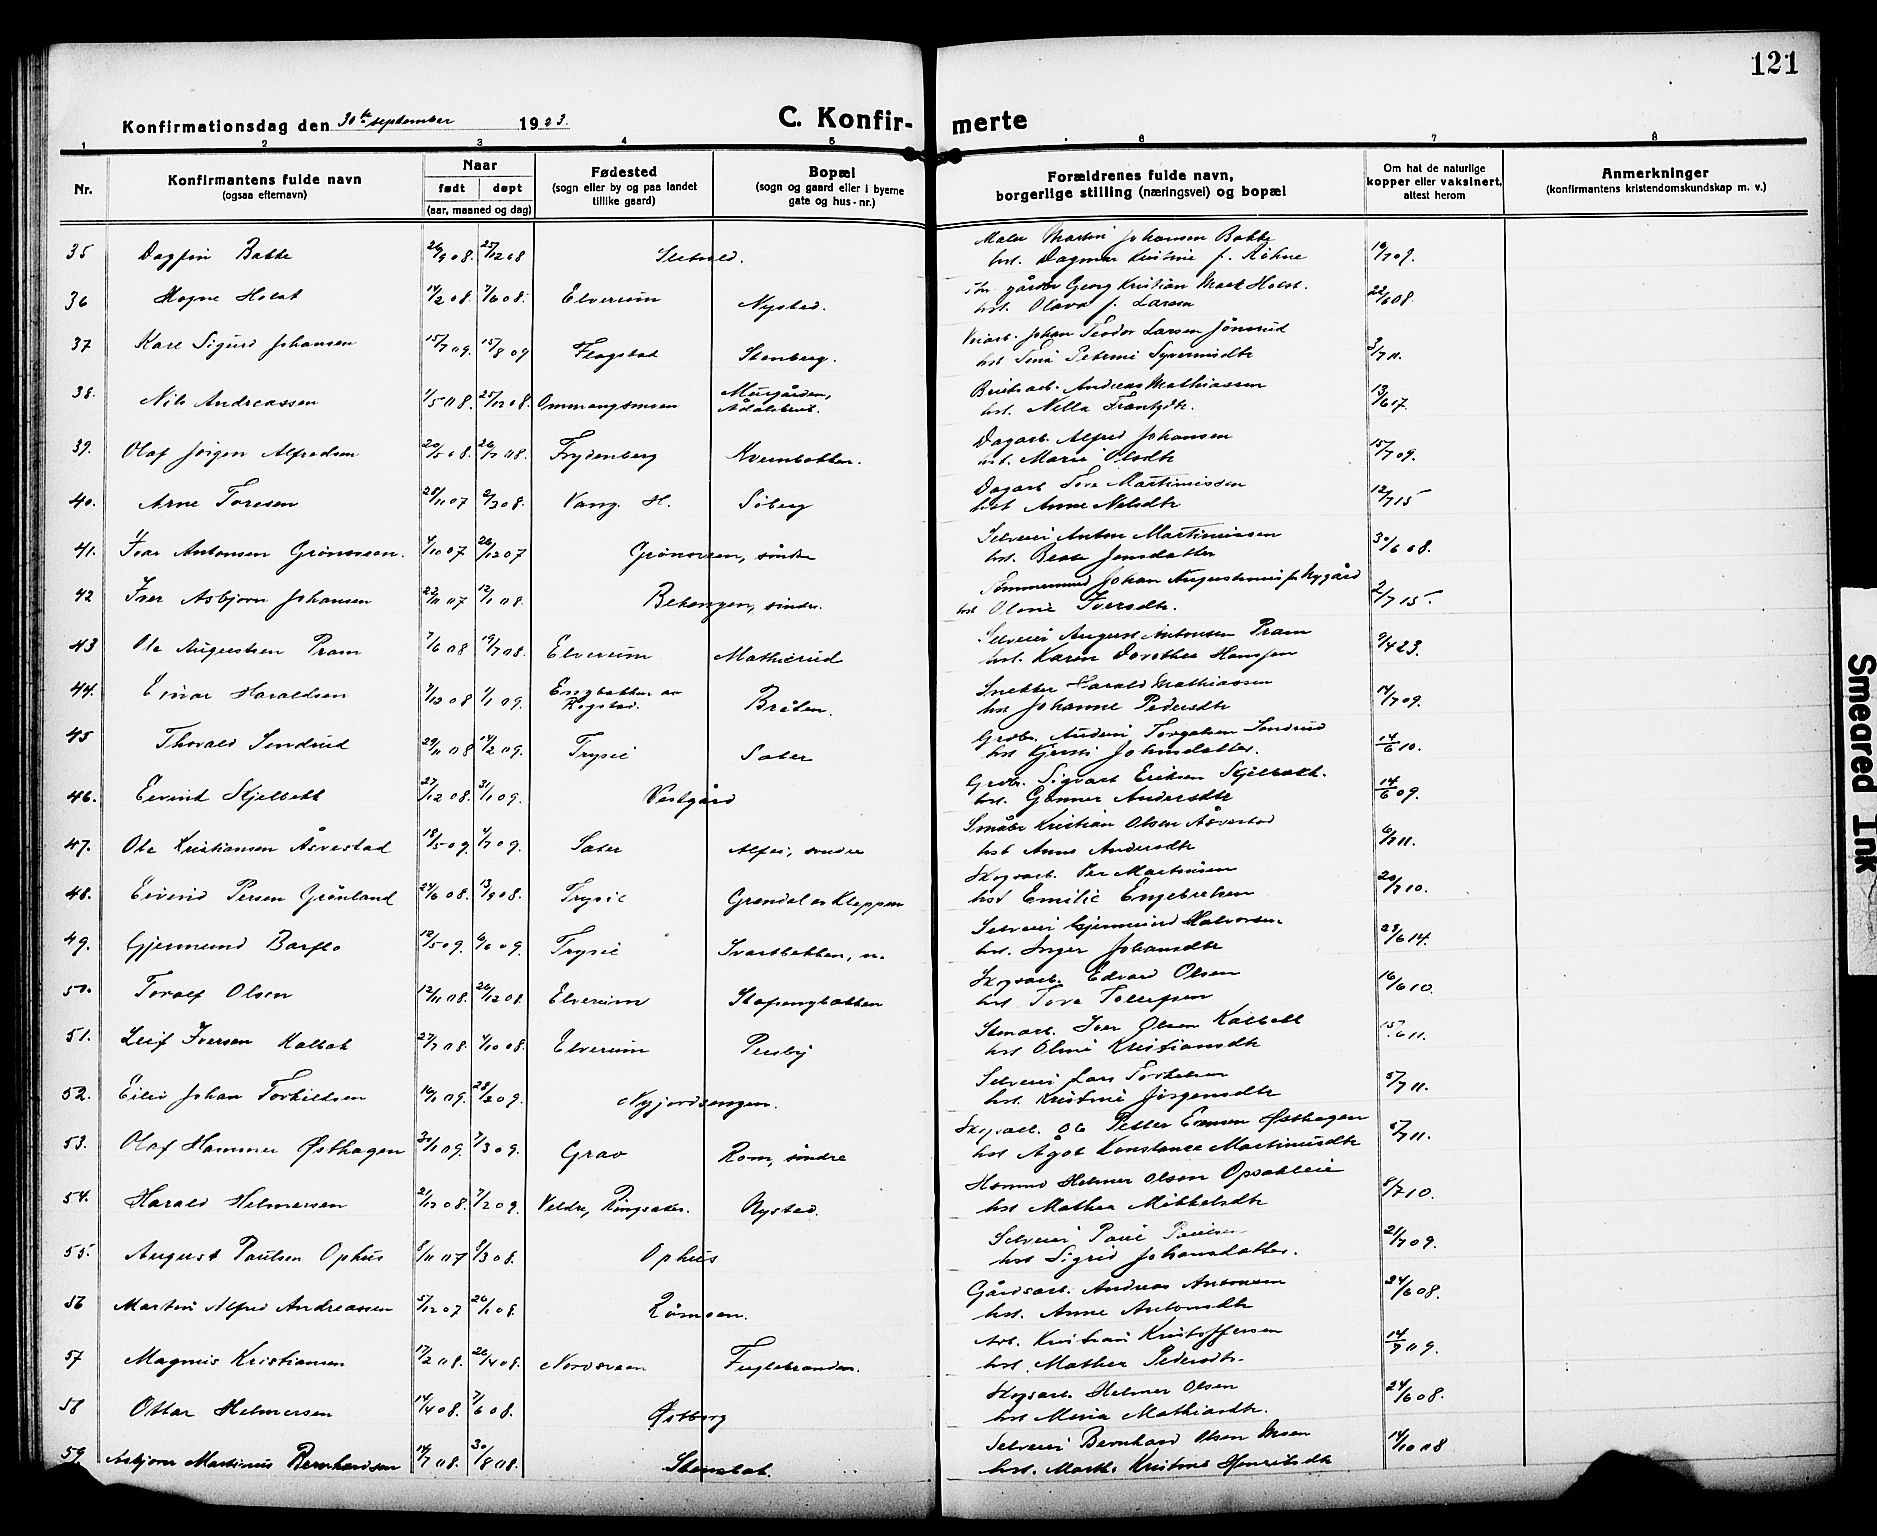 121
Konfirmationsdag den 30te september 1923. C. Konfirmerte
1 2 3 4 5 6 7 8
Nr.
Konfirmantens fulde navn
(ogsaa efternavn)
Naar
født døpt
(aar, maaned og dag)
Fødested
(sogn eller by og paa landet
tillike gaard)
Bopæl
(sogn og gaard eller i byerne
gate og hus-nr.)
Forældrenes fulde navn,
borgerlige stilling (næringsvei) og bopæl
Om hat de naturlige
kopper eller vaksinert,
attest herom
Anmerkninger
(konfirmantens kristendomskundskap m. v.)
Maler Martin Johansen Bakke
35 Dagfin Bakke 26/9 08 25/12 08 19/7 09.
hst. Dagmar Kristine f.
Georg Kristian Holst.
36 Mogne Holst 14/2 08. 7/6 08. Elverum Nysted. 22/6 08.
hst. Olava f. Larsen
Johan Teodor Larsen
37 Karl Sigurd Johansen 15/7 09. 15/8 09 Flagstad Stenberg. 3/7 11.
hst Petrine
Andreas Mathiassen
38. Nils Andreassen 1/5 08. 25/12 08. Ommangsmoen 13/6 17.
hst. Nella
Dagarb. Alfred Johansen
39. Olaf Jørgen Alfredsen 20/5 08 26/7 08. Frydenberg Kvernbakken. 15/7 09.
hst. Marie Olsdtr
Dagarb Tore Martinussen
40. Arne Toresen 28/11 07 2/3 08. Vang. H. Søberg 12/7 15
hst Anne Nilsdtr
Selveier Anton Martinussen
41. Ivar Antonsen Grønosen. 4/10 07 26/12 07 Grønosen, søndre 30/6 08.
hst. Beate Jensdatter
Johan Augustinus f. Nygård
42 Iver Asbjørn Johansen 22/11 07 12/1 08. søndre. 2/7 15.
hst Oline Iversdtr.
Selveier August Antonsen Pram
43 Ole Augustsen Pram 7/6 08 19/7 08. Elverum Mathisrud 9/4 23.
hst. Karen Dorothea Hansen
Snekker Harald Mathiassen
44. Einar Haraldsen 7/12 08 1/1 09. Engbakken av Bråten. 14/7 09.
hst Johanne Pedersdtr
Grdbr. Torgalsen Søndrud
45 Thorald Søndrud 29/11 08 14/2 09. Trysil Sæter 14/6 10.
hst Kjersti Johnsdatter.
Grdbr. Sigvart Eriksen Skjelbakk.
46. Eivind Skjelbakk 27/12 08. 31/1 09. Vestgård 14/6 09.
hst. Gunner Andersdtr
Småbr Kristian Olsen Åsvestad
47. Ole Kristiansen Åsvestad 18/5 09. 4/7 09. Sæter søndre 6/7 11.
hst Anne Andersdtr
Skogsarb. Per Martinsen
48. Eivind Persen Grønland 24/6 08. 13/9 08. Trysil Grandal av Kleppen 20/7 10.
hst Emilie Engebretsen
Selveier Gjermund Halvorsen
49. Gjermund Barflo 12/5 09. 6/6 09. Trysil Svartbekken, n. 28/6 14.
hst. Inger Johansdtr
Skogsarb. Edvard Olsen
50. Toralf Olsen 12/11 08. 26/12 08. Elverum Stafsengbakken 16/6 10.
hst Tora Tollefsen
Stenarb. Iver Olsen Kalbakk
51. Leif Iversen Kalbak 27/7 08. 4/10 08. Elverum 15/6 11.
hst Oline Kristiansdtr
Selveier Lars Torkelsen
52. Eiliv Johan Torkildsen 16/1 09. 28/2 09. Nyjordsengen. 5/7 11.
hst. Kristine Jørgensdtr
Skogsarb. Ole Petter Østhagen
53. Olaf Hammer Østhagen 30/1 09. 7/3 09. Grav Rom, søndre 5/7 11.
hst Ågot Konstance Martinusdtr
Helmer Olsen
54. Harald Helmersen 21/12 08. 7/2 09. Veldre, Ringsaker. Nysted. 8/7 10.
hst Mathea Mikkelsdtr
Selveier Paul Paulsen
55. August Paulsen Ophus 8/11 07 8/3 08. Ophus 21/7 09.
hst Sigrid Johansdatter.
Gårdsarb. Andreas Antonsen
56 Martin Alfred Andreassen 5/12 07 26/1 08. Rømoen. 24/6 08.
hst. Anne Antonsdtr
Arb. Kristian Kristoffersen
57 Magnus Kristiansen 17/2 08. 26/4 08. Nordsveen Fuglebranden. 14/9 09.
hst. Mathea Pedersdtr.
Skogsarb. Helmer Olsen
58 Ottar Helmersen 14/4 08. 7/6 08. Østborg 24/6 08.
hst Mina Mathiasdtr.
Selveier Bernhard Olsen Moen
59 Asbjørn Martinus Bernhardsen 14/7 08. 30/8 08. Stenbak. 14/10 08
hst. Marthe Kristine Henriksdtr
Smeared Ink